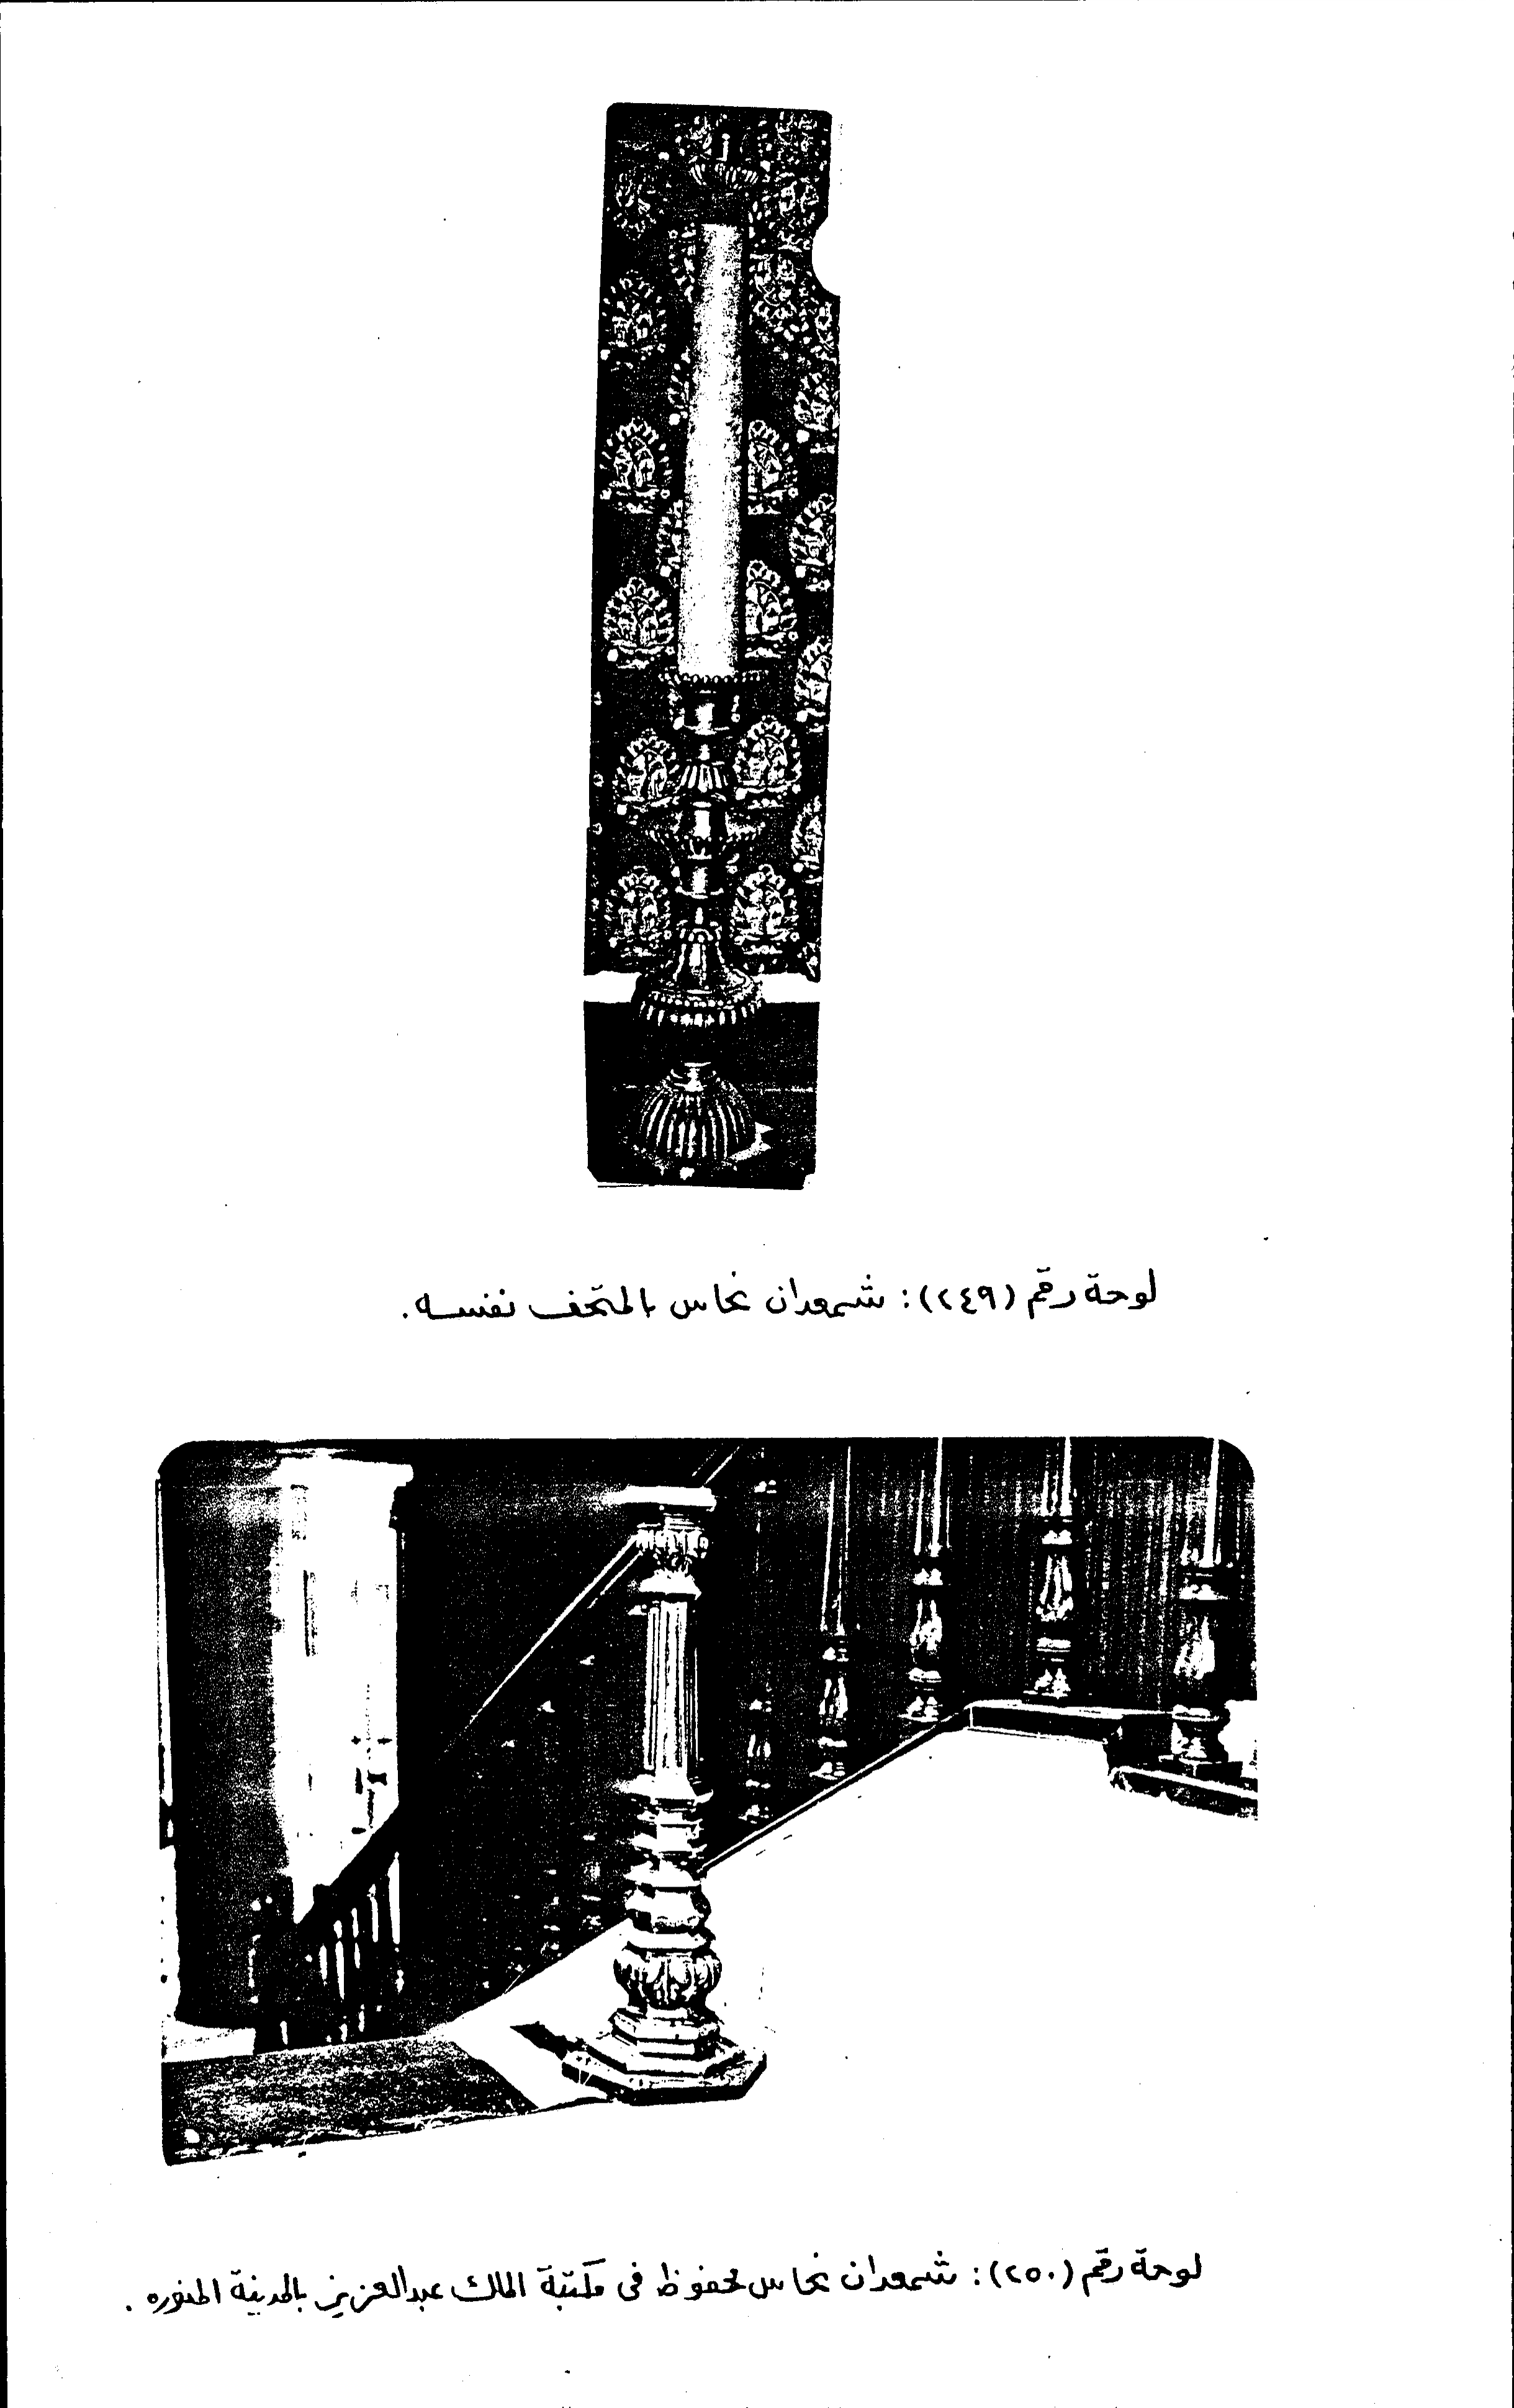 لوحة رقم (٢٤٩): شمعدان نحاس بالمتحف نفسه.
لوحة رقم (٢٥٠): شمعدان نحاس محفوظ في مكتبة الملك عبدالعزيز بالمدينة المنوره.